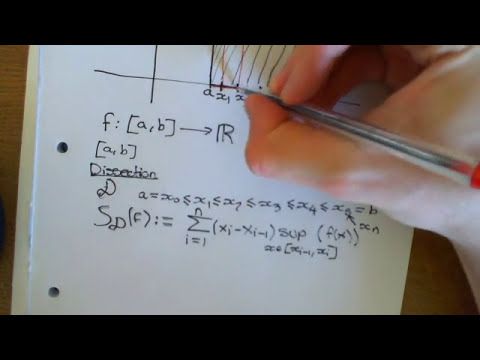 a x₁ x
f: [a,b] → ℝ
[a,b]
Dissection
𝒟 a = x₀ ≤ x₁ ≤ x₂ ≤ x₃ ≤ x₄ ≤ x₅ = b
xₙ
S_𝒟(f) := ∑ⁿᵢ₌₁ (xᵢ - xᵢ₋₁) sup (f(x))
x∈[xᵢ₋₁, xᵢ]